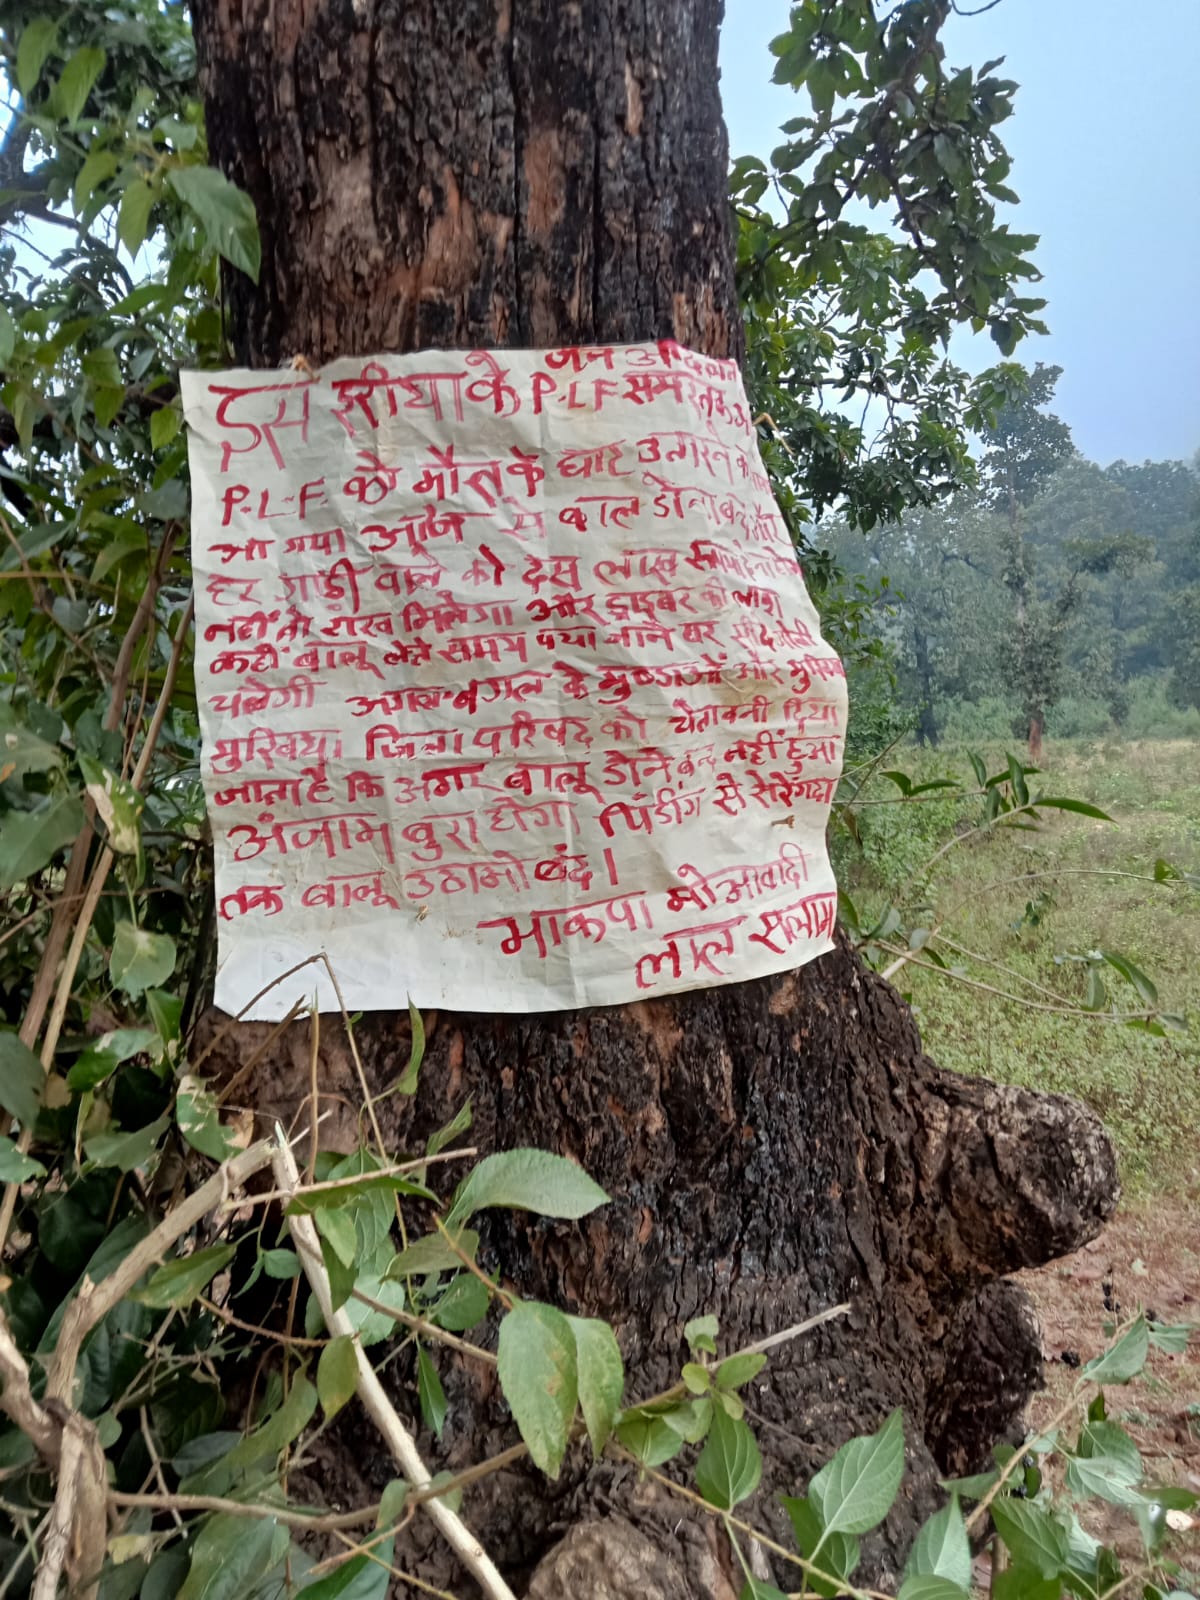 जन अदालत
इस इरीया के P.L.F समस्त
P.L.F को मौत के घाट उतारने का
आ गया आज से बालु ढोना बन्द और
हर गाड़ी वाले को दस लाख रूपया देना होगा
नहीं तो राख मिलेगा और ड्राइबर की लाश
कहीं बालू लेते समय पया जाने पर सीधे गोली
चलेगी अगल-बगल के मुण्डाओं और
मुखिया जिला परिषद को चेतावनी दिया
जाता है कि अगर बालू ढोने बन्द नहीं हुआ
अंजाम बुरा होगा पिंडींग से सेरेंगदा
तक बालू उठाओ बंद।
भाकपा मोआवादी
लाल सलाम